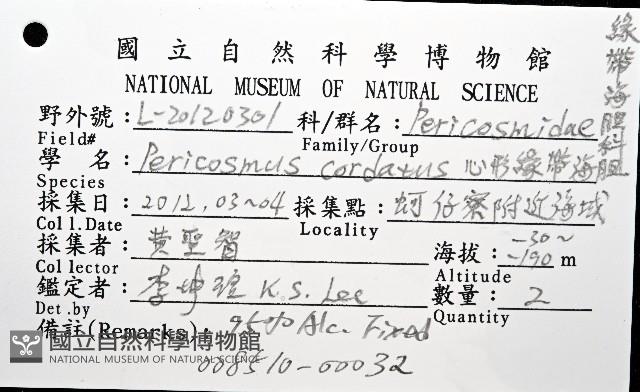 國立自然科學博物館
NATIONAL MUSEUM OF NATURAL SCIENCE
緣帶海膽科
野外號：L-20120301 科/群名：Pericosmidae
Field# Family/Group
學 名：Pericosmus cordatus 心形緣帶海膽
Species
採集日：2012, 03~04 採集點：蚵仔寮附近海域
Coll.Date Locality
採集者：黃聖智 海拔：-30~-190 m
Collector Altitude
鑑定者：李坤瑄 K.S. Lee 數量：2
Det.by Quantity
備註(Remarks)：95% Alc. Fixed
國立自然科學博物館
NATIONAL MUSEUM OF NATURAL SCIENCE
008510-00032